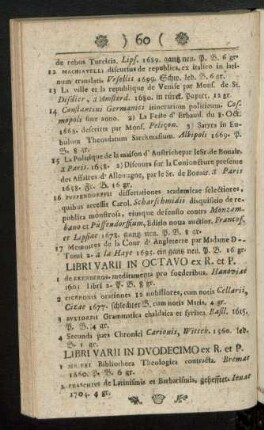 ) 60 (
de rebus Turcicis, Lips. 1689. gantz neu. P. B. 6 gr.
12 MACHIAVELLI discursus de republica, ex italico in latinum translati Vesaliis 1699. Schw. led. B. 6 gr.
13 La ville et la republique de Venise par Monf. de St. Disdier, à Amsterd. 1680. in türck. Papier. 12 gr.
14 Constantini Germanici itinerarium politicum. Cosmopoli sine anno. 2) La Feste d'Erbaud. du 2. Oct. 1665. descritte par Monf. Pelisson. 3) Satyra in Eubulum Theosdatum Sarckmasium. Albipoli 1669. P. B. 8 gr.
15 La Politique de la maison d'Austriche par le Sr. de Bonair. à Paris. 1658. 2) Discours sur la Conioncture presente des Affaires d'Allemagne, par le Sr. de Bonair. à Paris 1658. Fr. B. 16 gr.
16 dissertationes academicae selectiores, quibus accessit Carol. Scharschmidii disquisitio de republica monstrosi, eiusque defensio contra Monzambano et Puffendorfium, Editio nova auctior. Francof. et Lipsiae 1678. gantz neu. P. B. 8 gr.
17 Memoires de la Cour d'Angleterre par Madame D- Tom 1. 2. à la Haye 1695. ein gantz neu. P. B. 16 gr.
LIBRI VARII IN OCTAVO ex R. et P.
1 meditamenta pro foederibus. Hanoviae 1601 libri 2. P. B. 8 gr.
2 CICERONIS orationes 12 subtiliores, cum notis Cellarii, Cizae 1677. schlecht B, cum notis Mstis. 4 gr.
3 BVXTORFII Grammatica chaldaica et syriaca Basil. 1615. P. B. 4 gr.
4 Secunda pars Chronici Carionis, Witteb. 1560. led. B. 1 gr.
LIBRI VARII IN DVODECIMO ex R. et P.
1 Bibliotheca Theologica contracta. Bremae 1660. P. B. 6 gr.
2 de Latinismis et Barbarismis, geheftet. Ienae 1704. 4 gr.